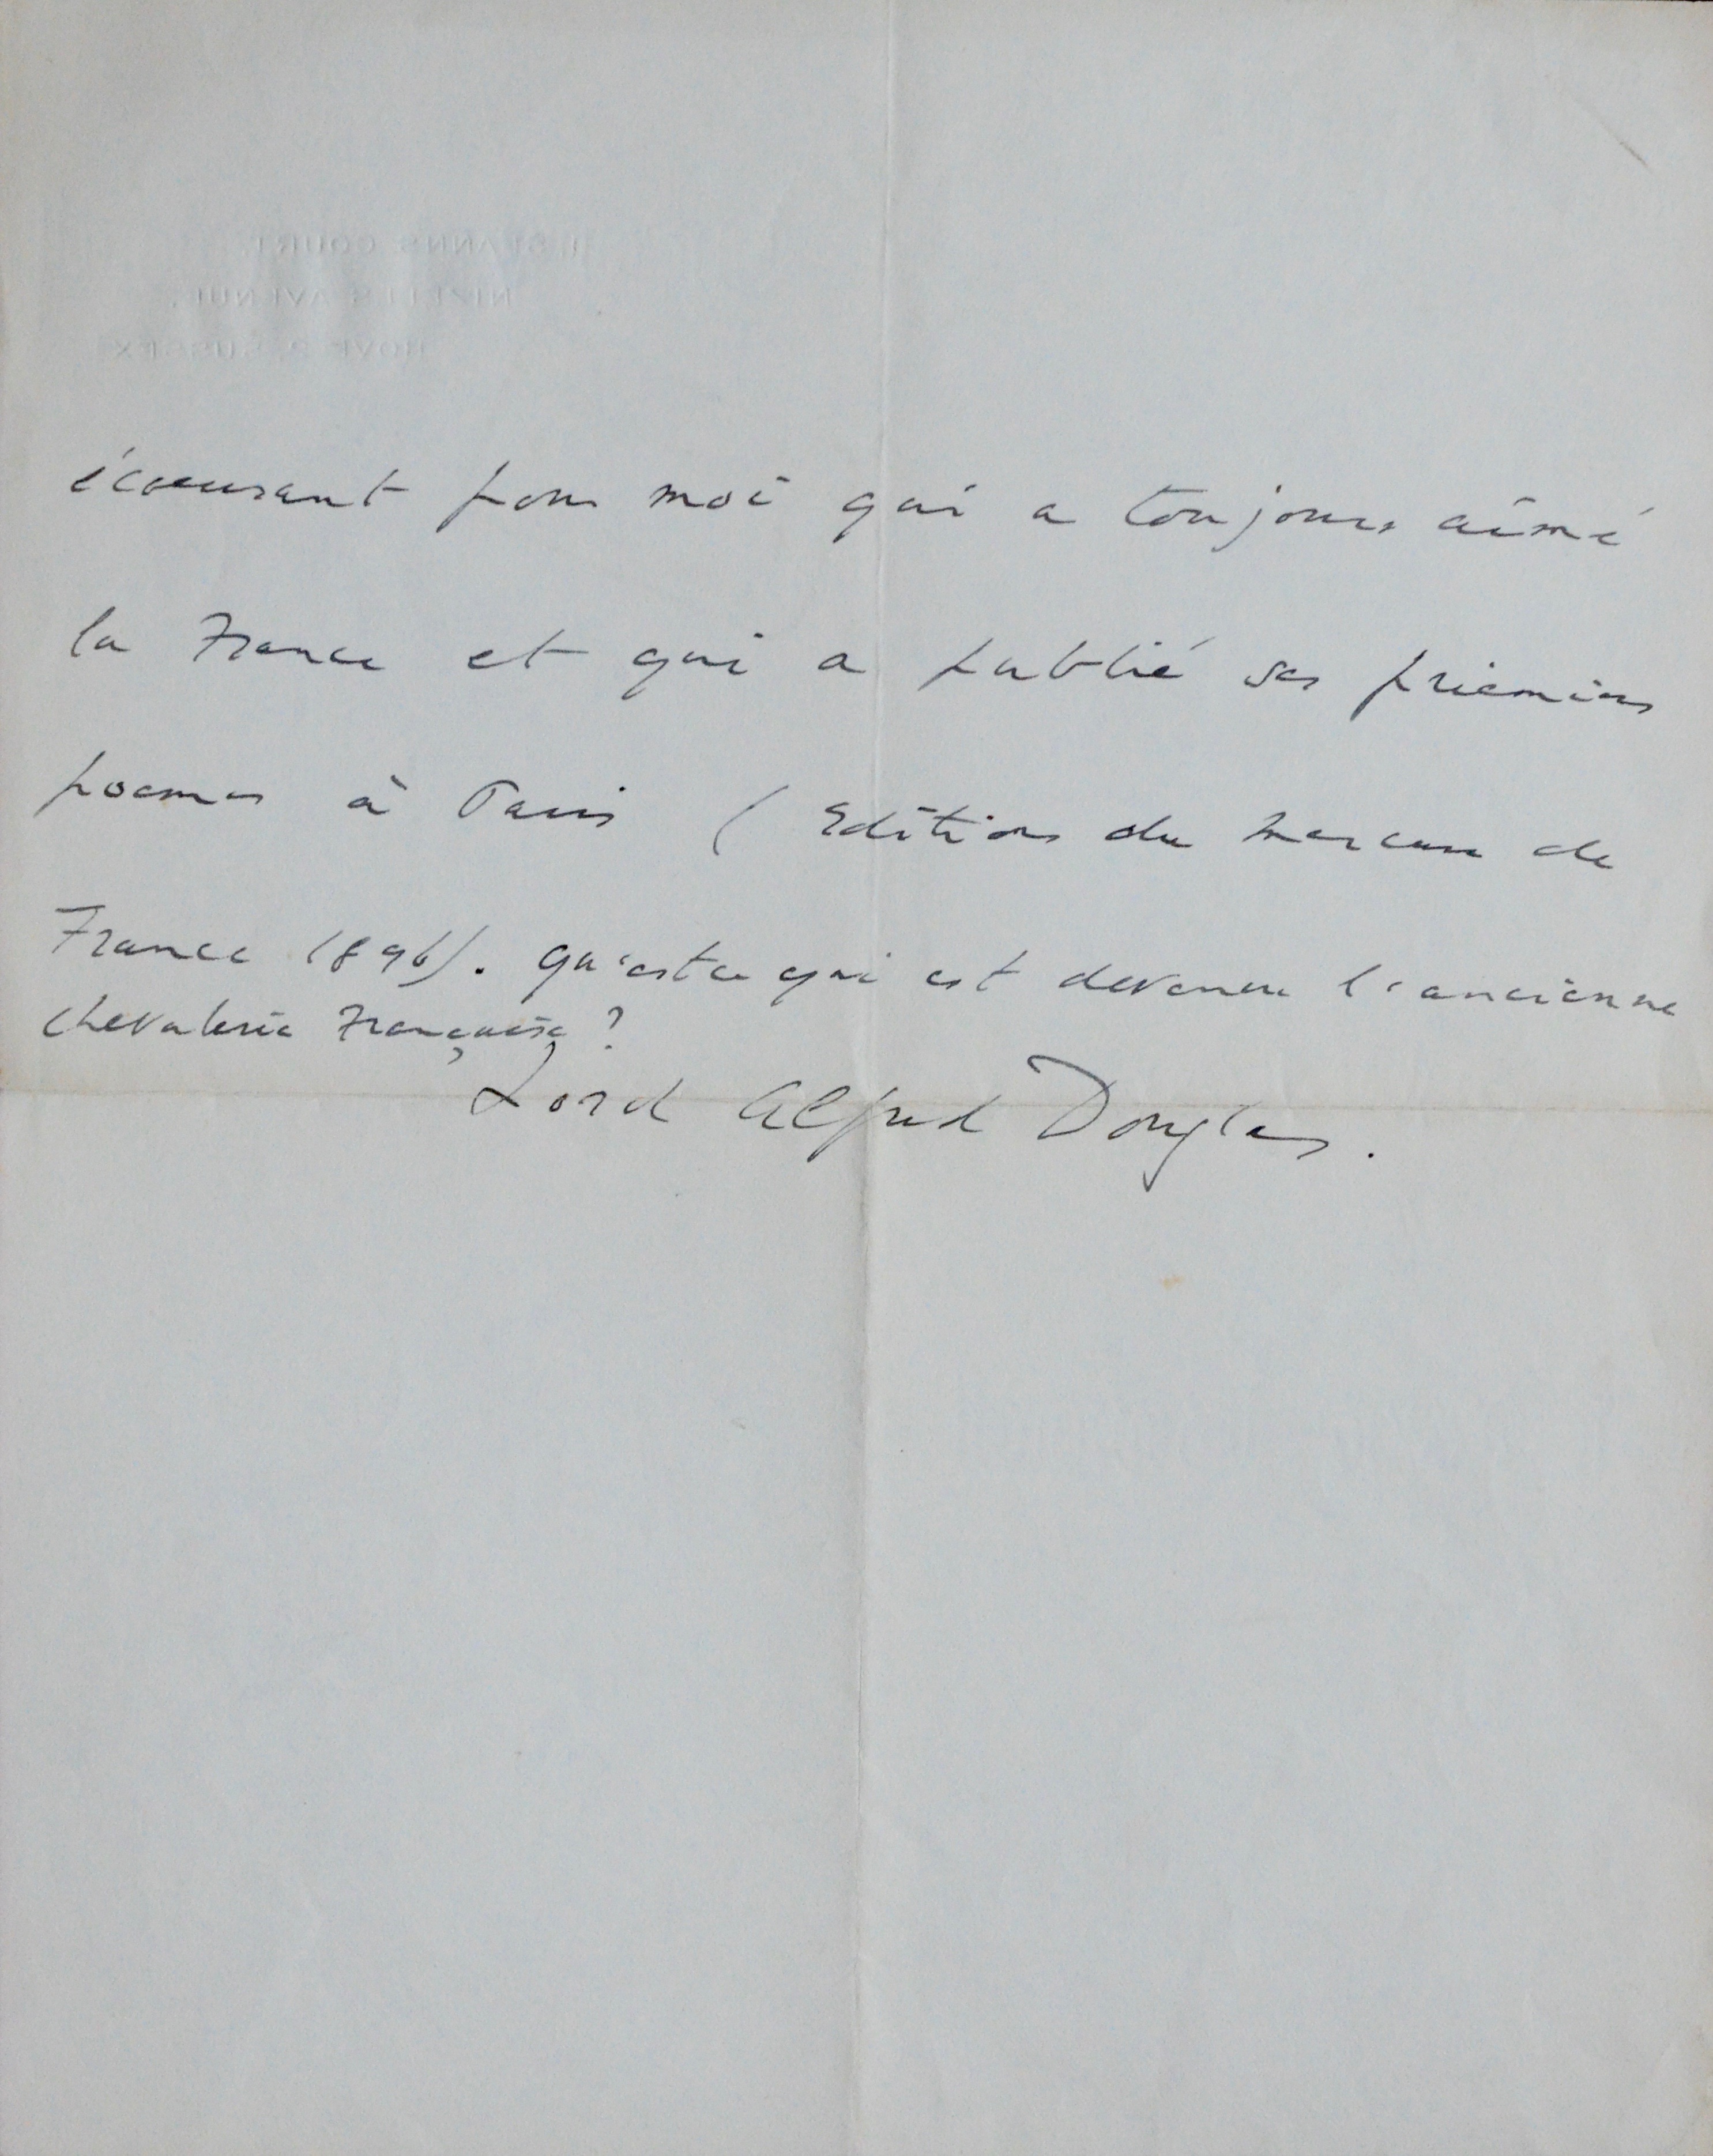 ST ANN'S COURT,
NIZELLS AVENUE,
HOVE 2, SUSSEX
écoeurant pour moi qui a toujours aimé
la France et qui a publié ses premiers
poemes à Paris ( Editions du Mercure de
France 1896). Qu'est ce qui est devenu l'ancienne
chevalerie Française ?
Lord Alfred Douglas.